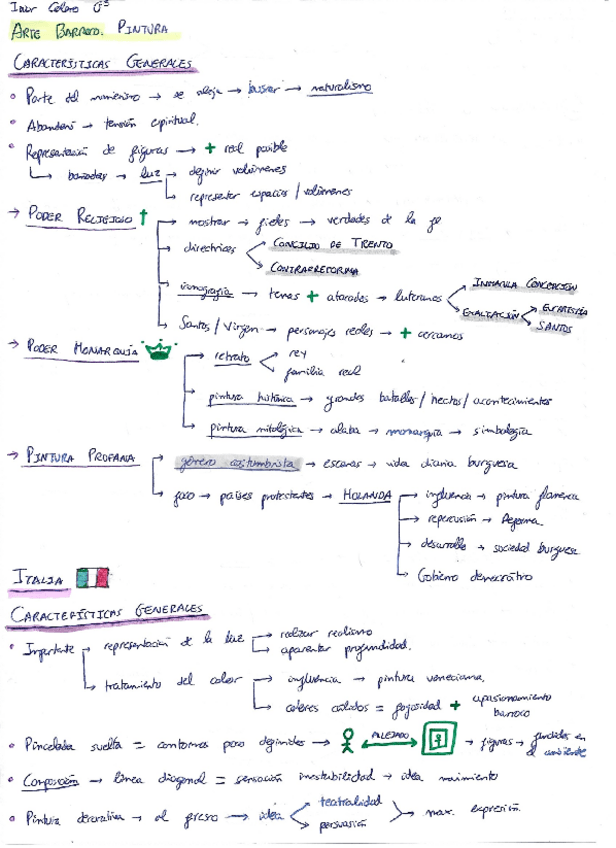 ARTE BARROCO. PINTURA
CARACTERÍSTICAS GENERALES
• Parte del manierismo → se aleja → buscar → naturalismo
• Abandona → tensión espiritual.
• Representación de figuras → + real posible
bañadas → luz → definir volúmenes
representar espacios / volúmenes
→ PODER RELIGIOSO → mostrar → fieles → verdades de la fe
directrices
CONCILIO DE TRENTO
CONTRARREFORMA
iconografía → temas + atacados → luteranos
INMACULADA CONCEPCIÓN
EXALTACIÓN
EUCARISTÍA
SANTOS
Santos / Virgen → personajes reales → + cercanos
→ PODER MONARQUÍA
retrato
rey
familia real
pintura histórica → grandes batallas / hechos / acontecimientos
pintura mitológica → alaba → monarquía → simbología
→ PINTURA PROFANA
género costumbrista → escenas → vida diaria burguesía
foco → países protestantes → HOLANDA
influencia → pintura flamenca
repercusión → Reforma
desarrollo → sociedad burguesa
Gobierno democrático
ITALIA
CARACTERÍSTICAS GENERALES
• Importante
representación de la luz
realzar realismo
aparentar profundidad.
tratamiento del color
influencia → pintura veneciana.
colores cálidos = fogosidad + apasionamiento barroco
• Pincelada suelta = contornos poco definidos → ALEJADO → figuras → fundidas en el ambiente
• Composición → línea diagonal = sensación inestabilidad → idea movimiento
• Pintura decorativa → al fresco → idea
teatralidad
persuasión
max. expresión.